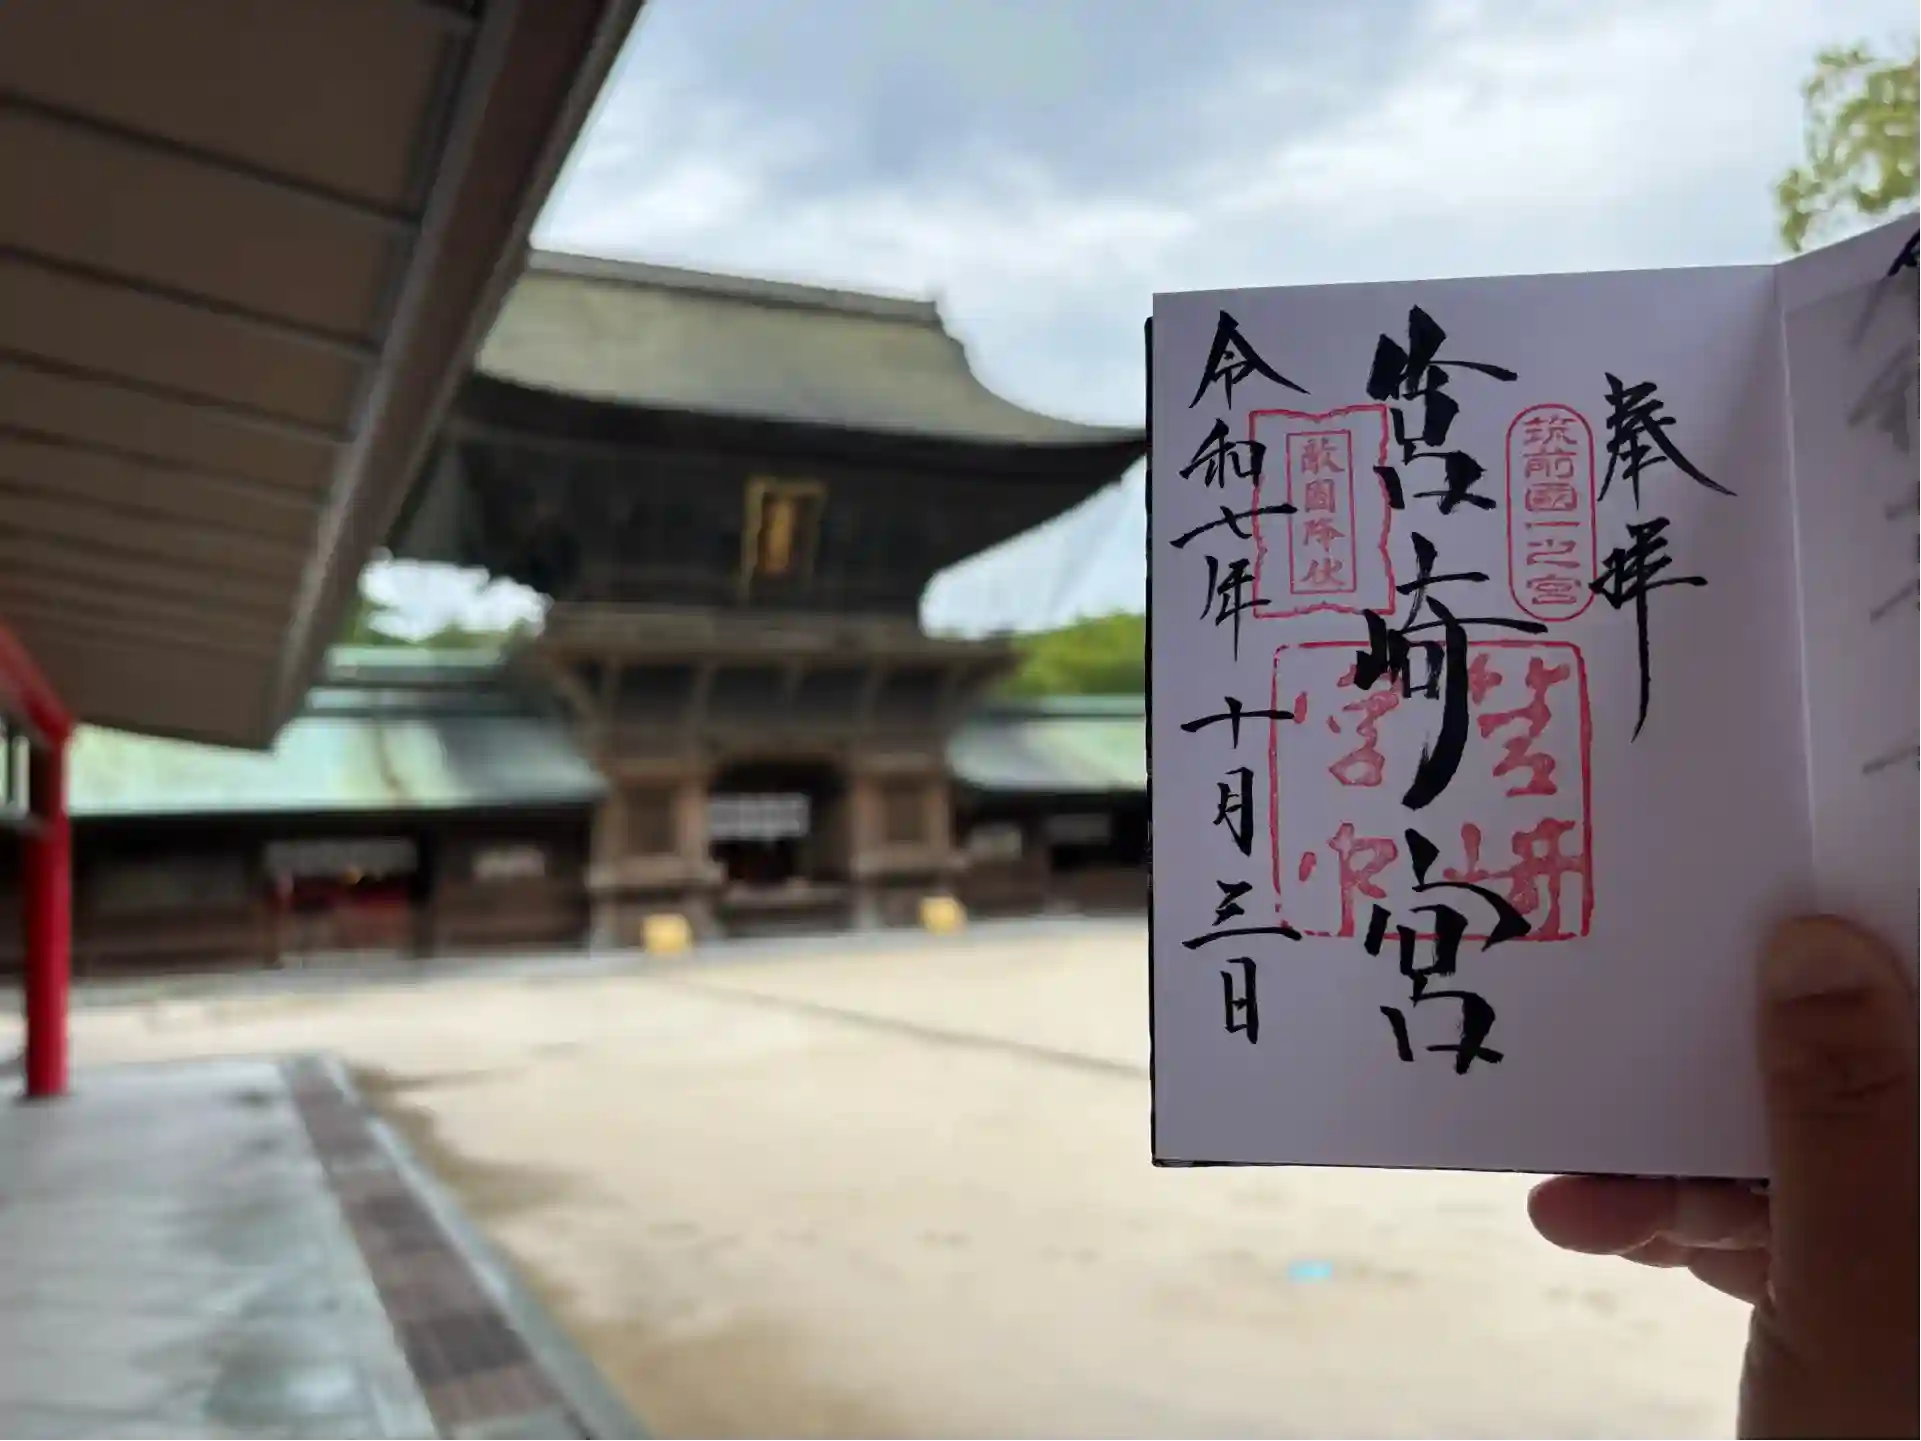 奉拝
筑前國一之宮
筥崎宮
敵国降伏
筥崎
宮印
令和七年 十月三日